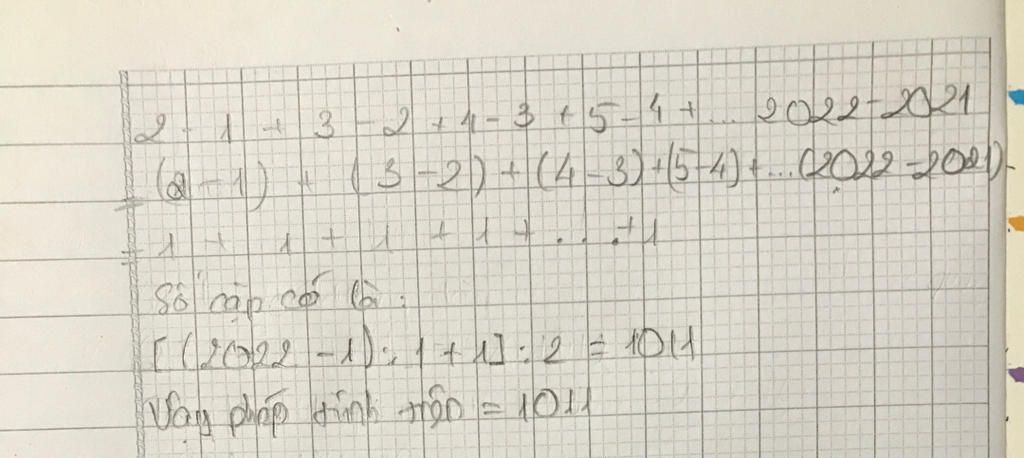 2 - 1 + 3 - 2 + 4 - 3 + 5 - 4 + ... 2022 - 2021
= (2 - 1) + (3 - 2) + (4 - 3) + (5 - 4) + ... (2022 - 2021)
= 1 + 1 + 1 + 1 + ... + 1
Số cặp có là :
[(2022 - 1) : 1 + 1] : 2 = 1011
Vậy phép tính trên = 1011